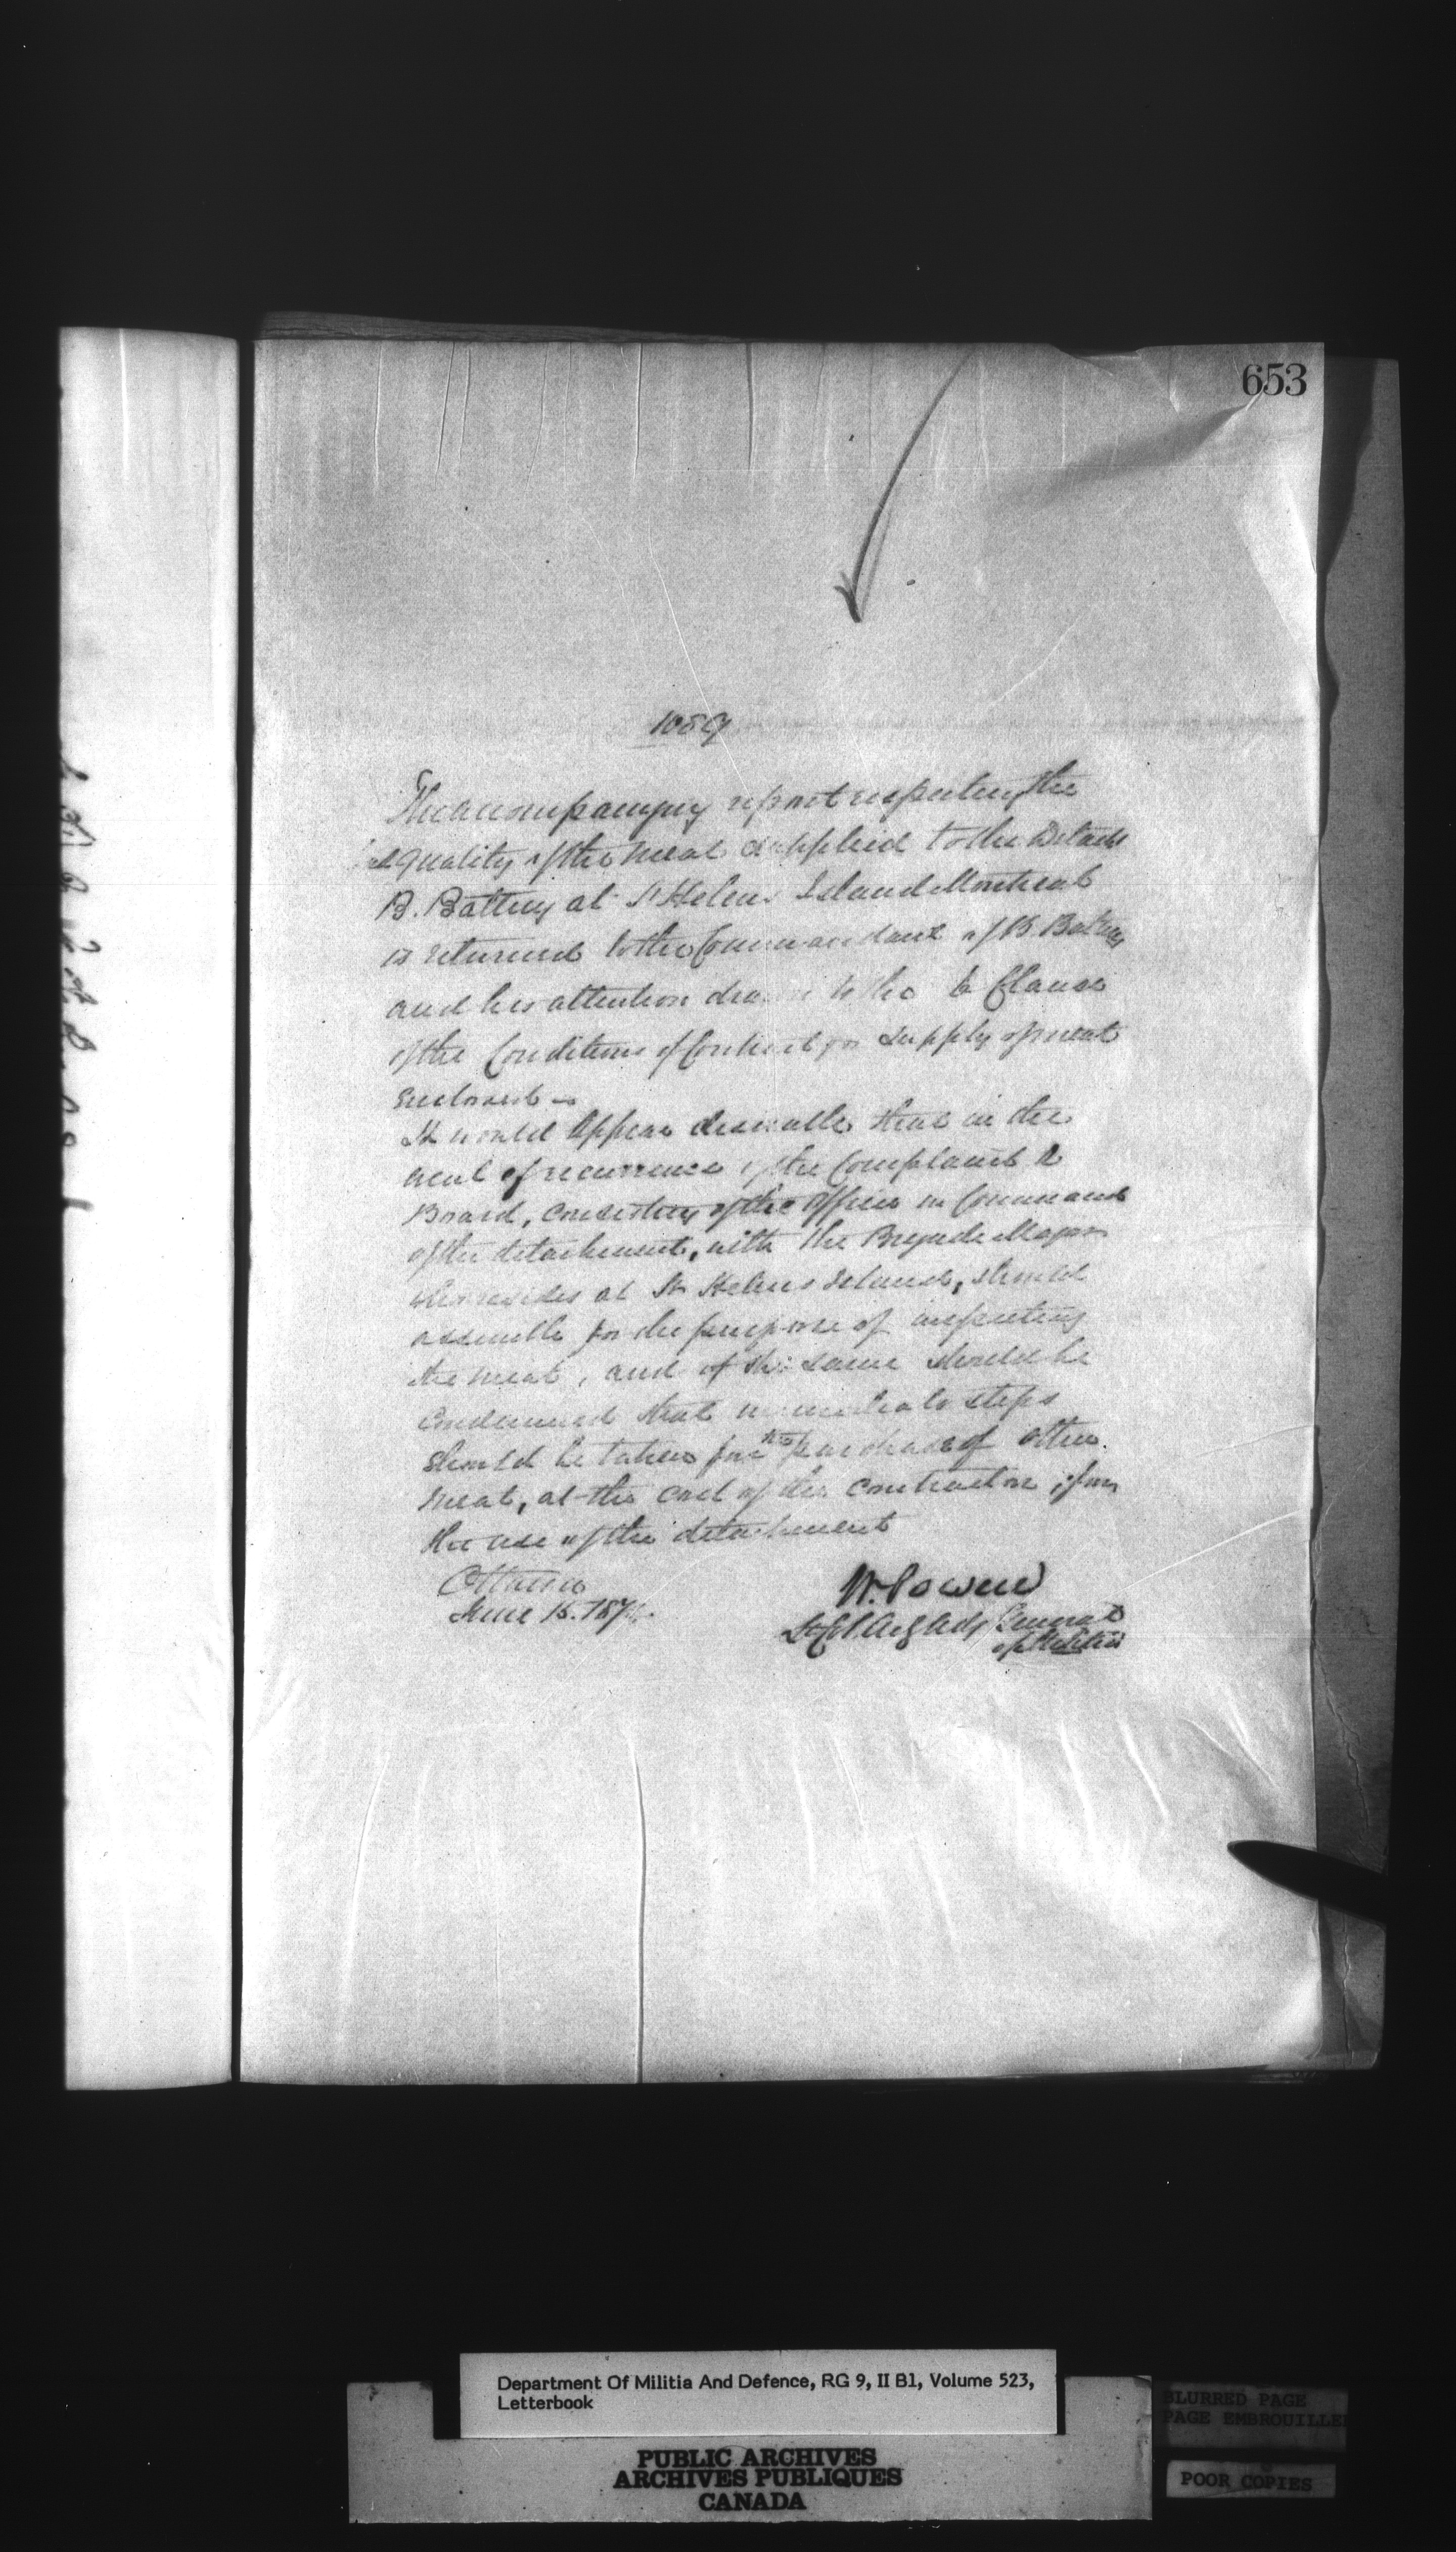 653
1059
The accompanying report respecting the
bad quality of the meat supplied to the Detach
B. Battery at St Helens Island Montreal
is returned to the Commandant of B. Battery
and his attention drawn to the 6 Clause
of the Conditions of Contract for supply of meat
enclosed –
It would appear desirable that in the
event of recurrence of the Complaint a
Board, consisting of the Officer in Command
of the detachment, with the Brigade Major
who resides at St Helens Island, should
assemble for the purpose of inspecting
the meat, and if the same should be
condemned that immediate steps
should be taken for the purchase of other
meat, at the cost of the contractor, for
the use of the detachment
Ottawa
June 15. 187
W. Powell
Lt Col. Actg Adj General
of Militia
Department Of Militia And Defence, RG 9, II B1, Volume 523,
Letterbook
BLURRED PAGE
PAGE EMBROUILLE
PUBLIC ARCHIVES
ARCHIVES PUBLIQUES
CANADA
POOR COPIES